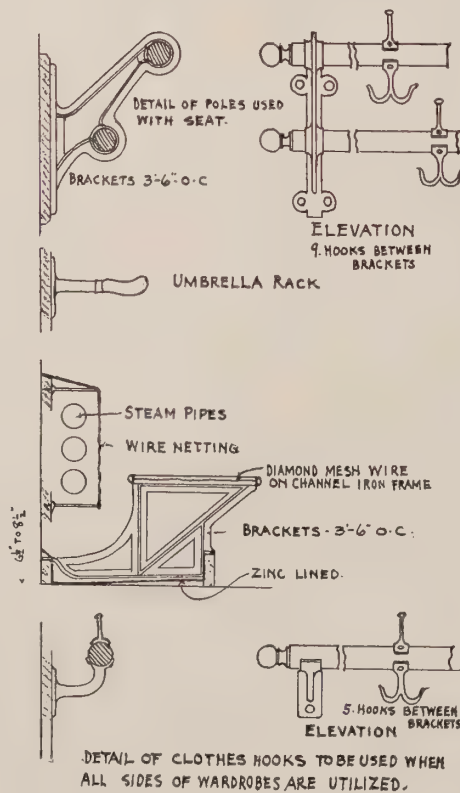 DETAIL OF POLES USED
WITH SEAT.
BRACKETS 3'-6" O.C
ELEVATION
9. HOOKS BETWEEN
BRACKETS
UMBRELLA RACK
STEAM PIPES
WIRE NETTING
DIAMOND MESH WIRE
ON CHANNEL IRON FRAME
6½" TO 8½"
BRACKETS - 3'-6" O.C.
ZINC LINED.
5. HOOKS BETWEEN
BRACKETS
ELEVATION
DETAIL OF CLOTHES HOOKS TO BE USED WHEN
ALL SIDES OF WARDROBES ARE UTILIZED.